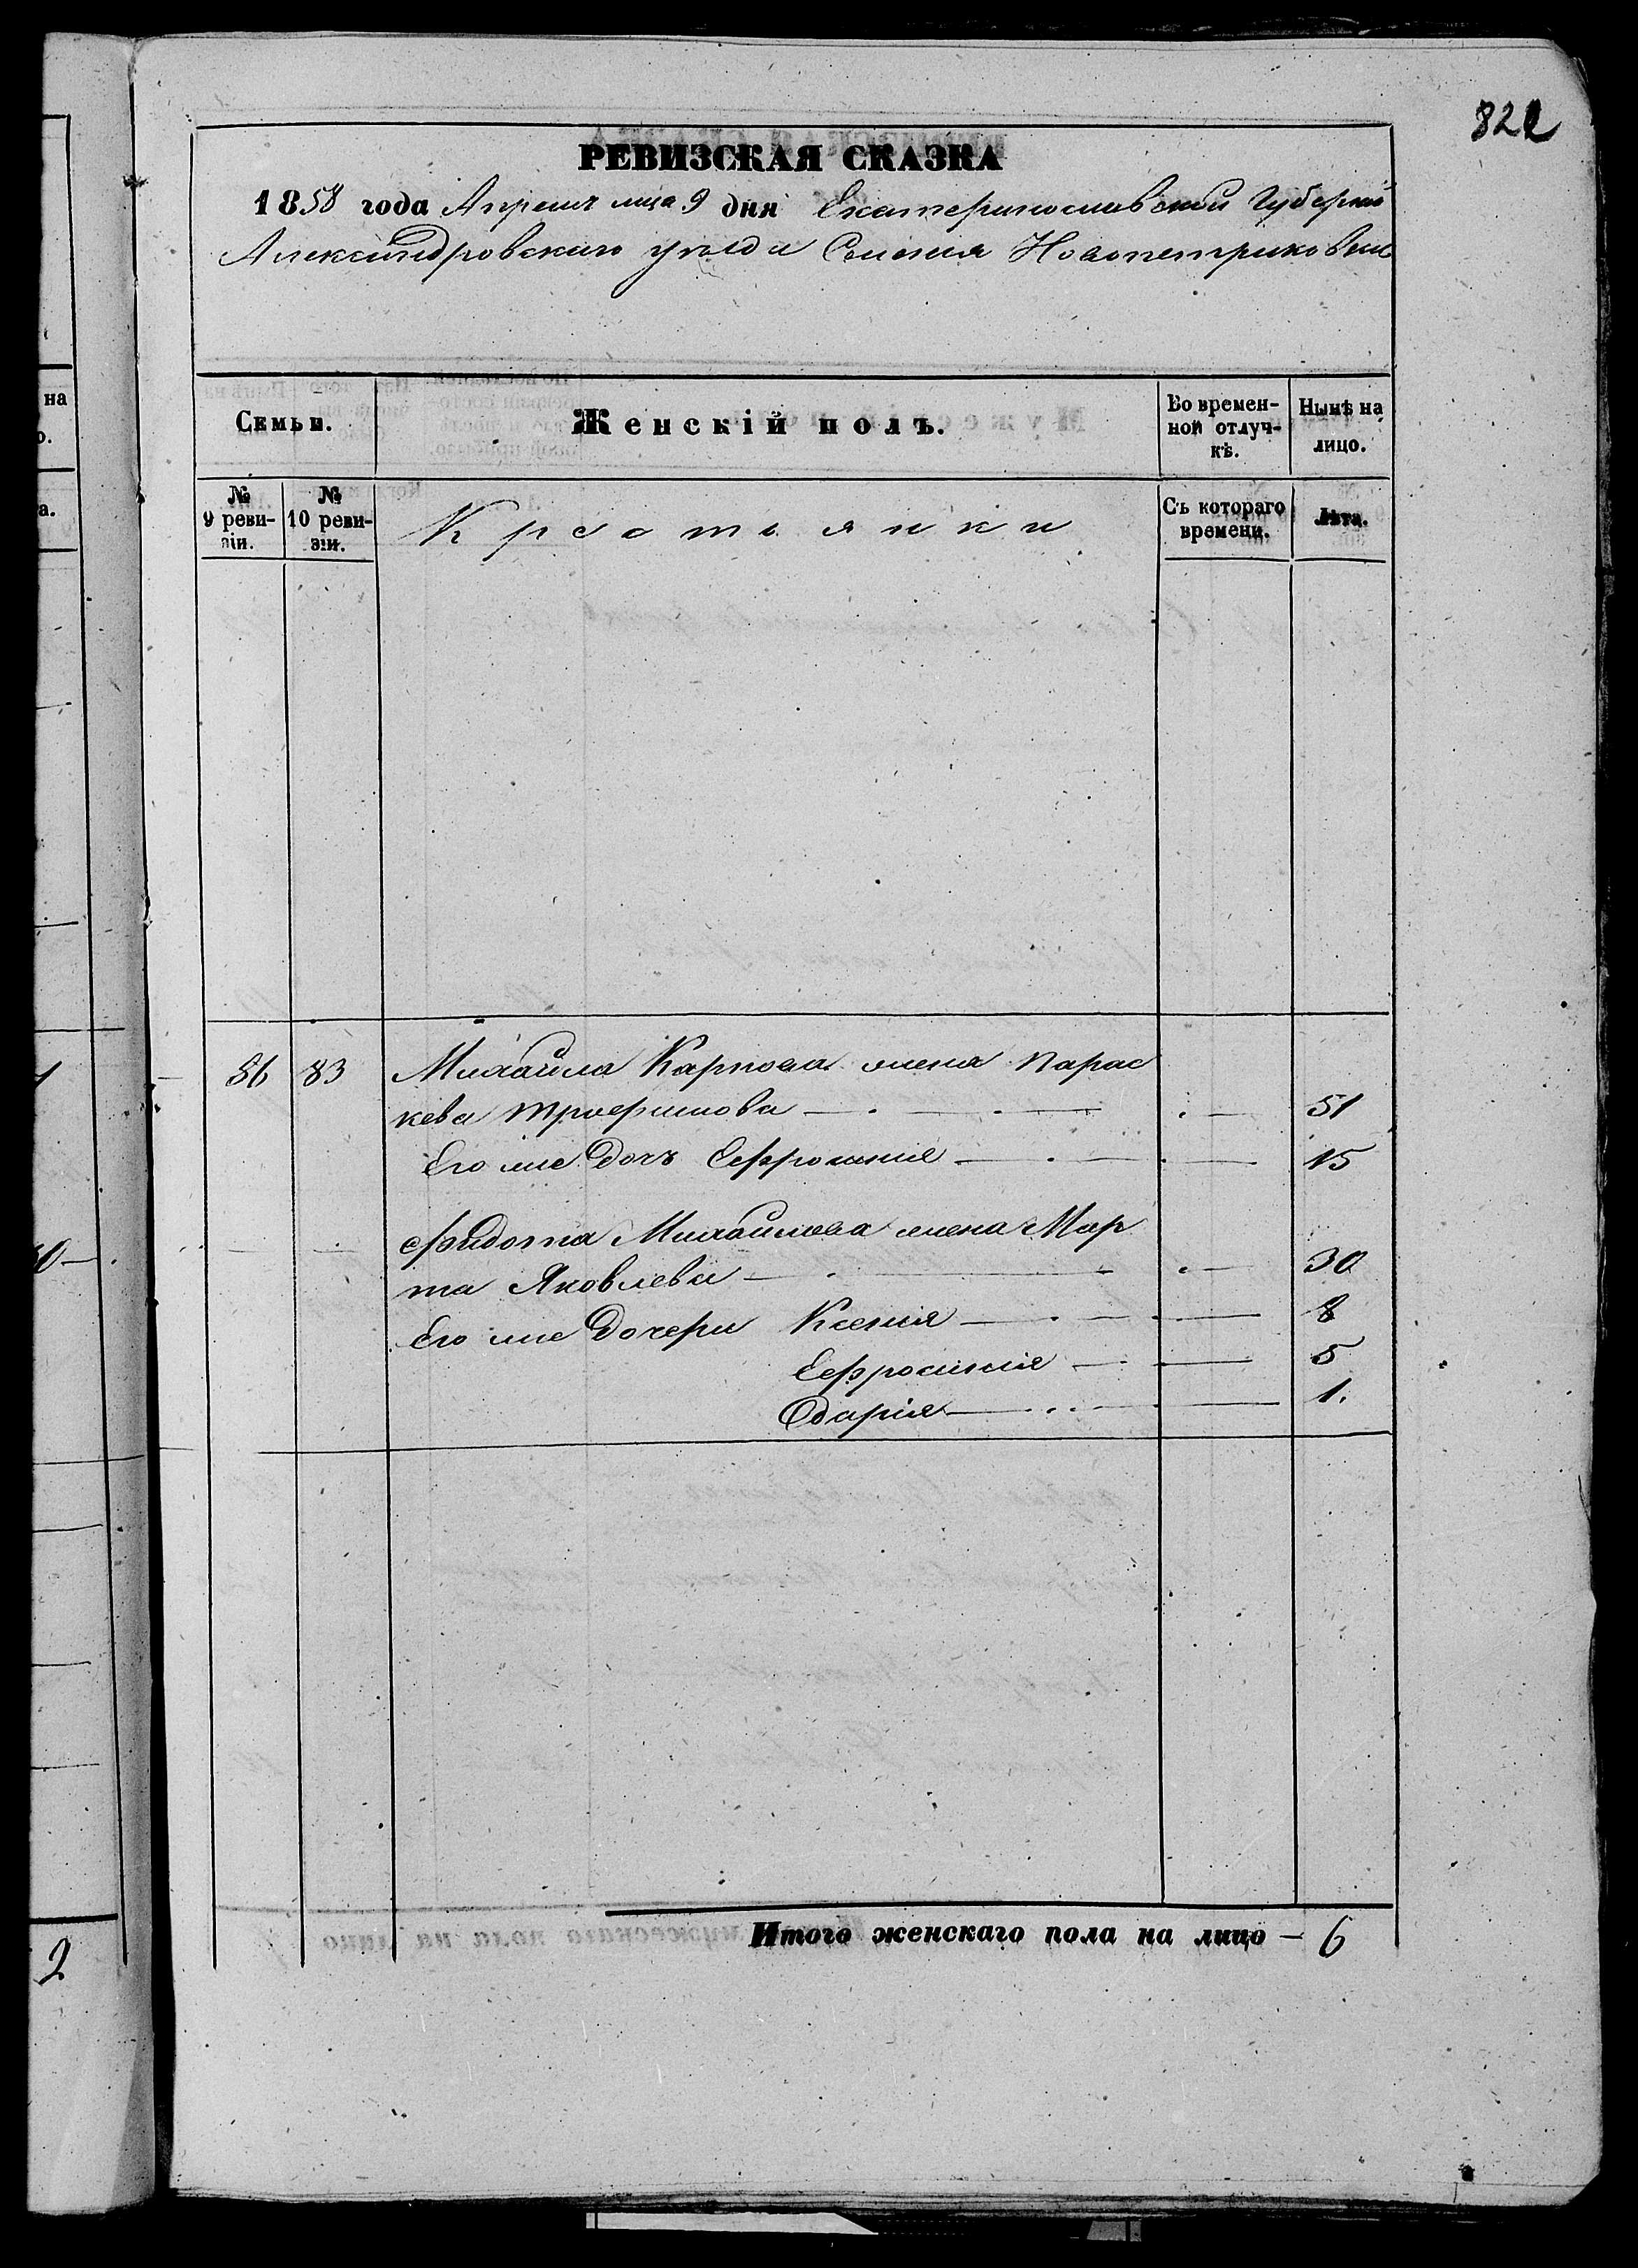 822
РЕВИЗСКАЯ СКАЗКА
1858 года Апреля мца 9 дня Екатеринославской Губерніи
Александровскаго уѣзда Селенія Новопетриковки
Семьи.
Женскій полъ.
Во времен-
ной отлуч-
кѣ.
Нынѣ на
лицо.
№
9 реви-
зіи.
№
10 реви-
зіи.
Крестьянки
Съ котораго
времени.
Лѣта.
86 83 Михайла Карпова жена Парас
кева Трофимова 51
Его же Дочь Ефросинія 15
Фидота Михайлова жена Мар
та Яковлева 30
Его же Дочери Ксенія 8
Ефросинія 5
Одарія 1.
Итого женскаго пола на лицо — 6
на
о.
а.
2